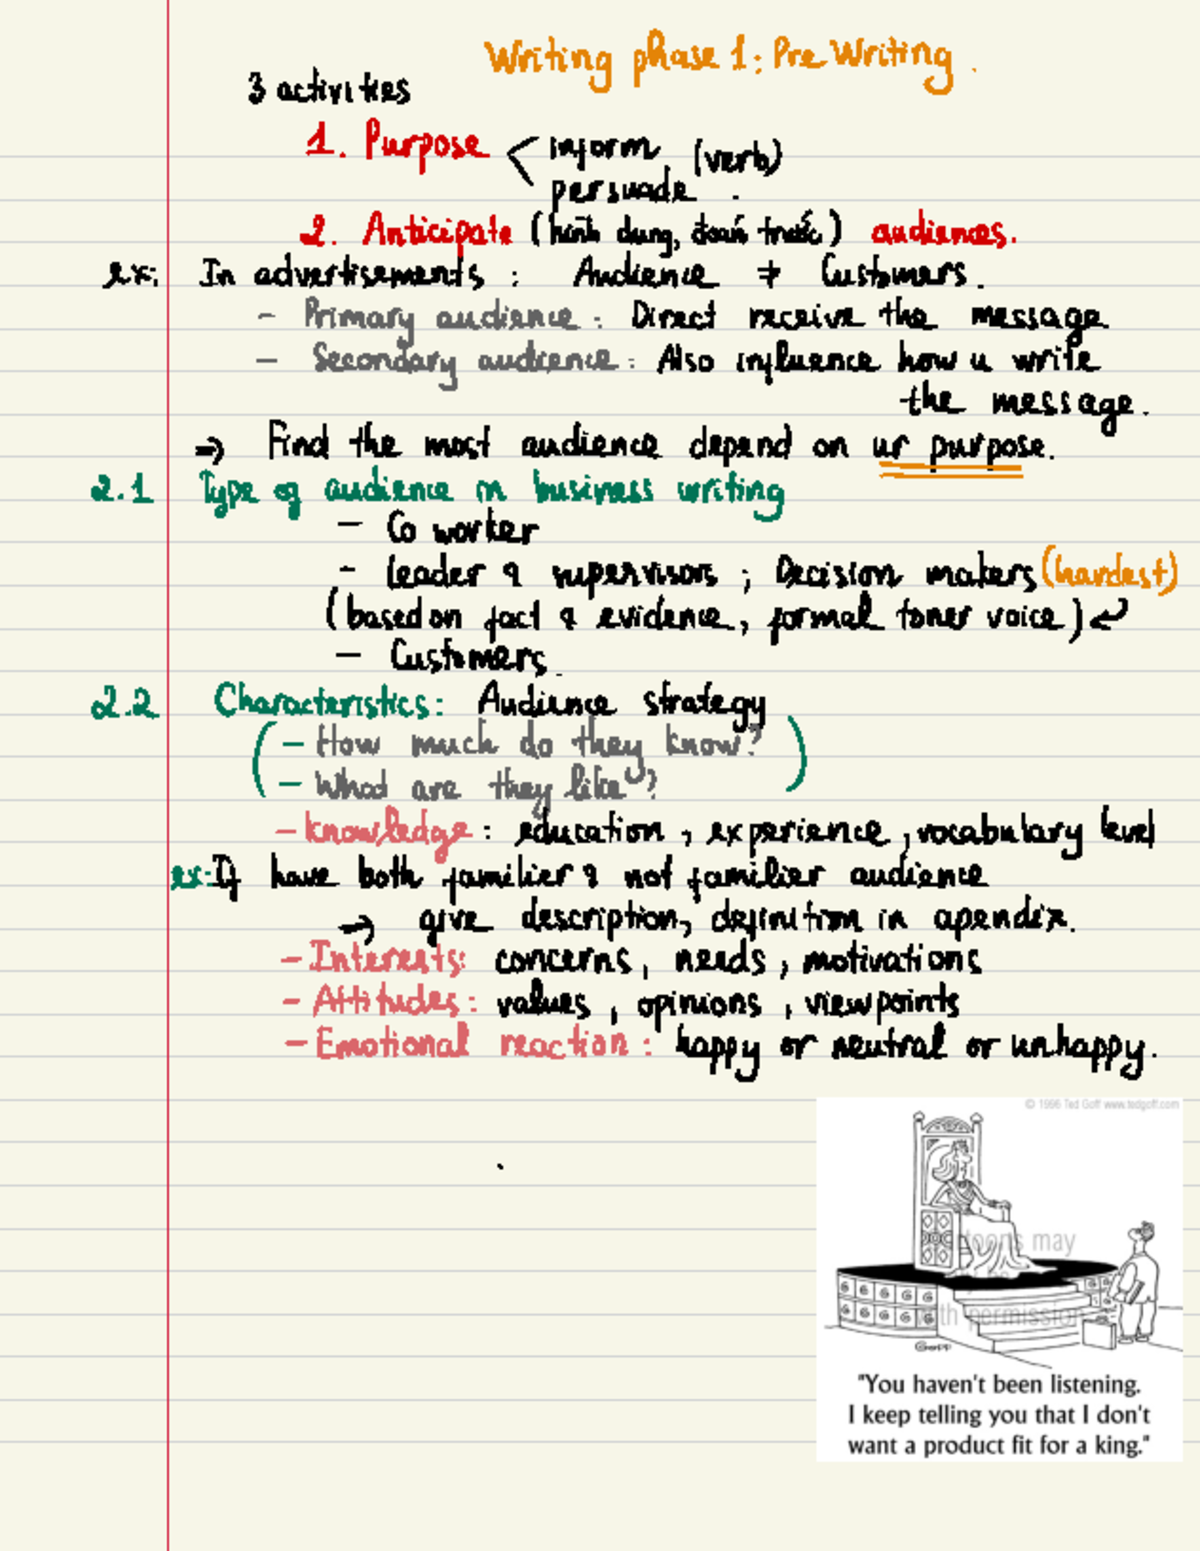 Writing phase 1: Pre Writing.
3 activities
1. Purpose < inform (verb)
persuade.
2. Anticipate (hình dung, đoán trước) audiences.
ex: In advertisements: Audience ≠ Customers.
- Primary audience: Direct receive the message
- Secondary audience: Also influence how u write
the message.
⇒ Find the most audience depend on ur purpose.
2.1 Type of audience in business writing
- Co worker
- Leader & supervisors; Decision makers (hardest)
(based on fact & evidence, formal toner voice) ↵
- Customers.
2.2 Characteristics: Audience strategy
(- How much do they know?
- What are they like?)
- knowledge: education, experience, vocabulary level
ex: If have both familier & not familier audience
→ give description, definition in apendix.
- Interests: concerns, needs, motivations
- Attitudes: values, opinions, viewpoints
- Emotional reaction: happy or neutral or unhappy.
© 1996 Ted Goff www.tedgoff.com
toons may
with permission
GOFF
"You haven't been listening.
I keep telling you that I don't
want a product fit for a king."